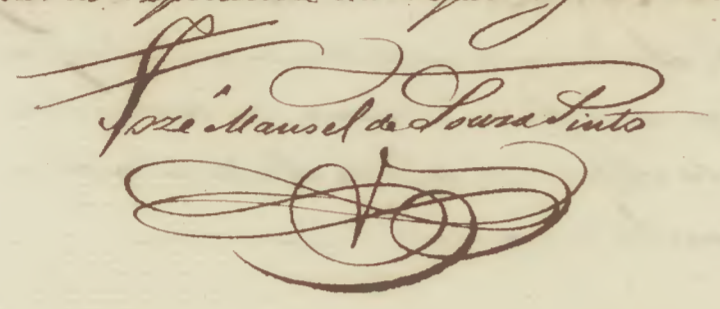 Joze Manoel de Souza Pinto